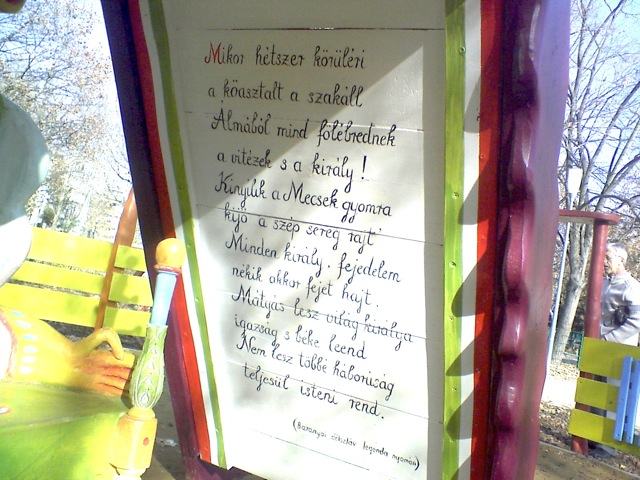 Mikor hétszer körüléri
a kőasztalt a szakáll
Álmából mind fölébrednek
a vitézek s a király!
Kinyílik a Mecsek gyomra
kijő a szép sereg rajt'
Minden király, fejedelem
nékik akkor fejet hajt.
Mátyás lesz világ királya
igazság s béke leend
Nem lesz többé háborúság
teljesül isteni rend.
(Baranyai népi legenda nyomán)